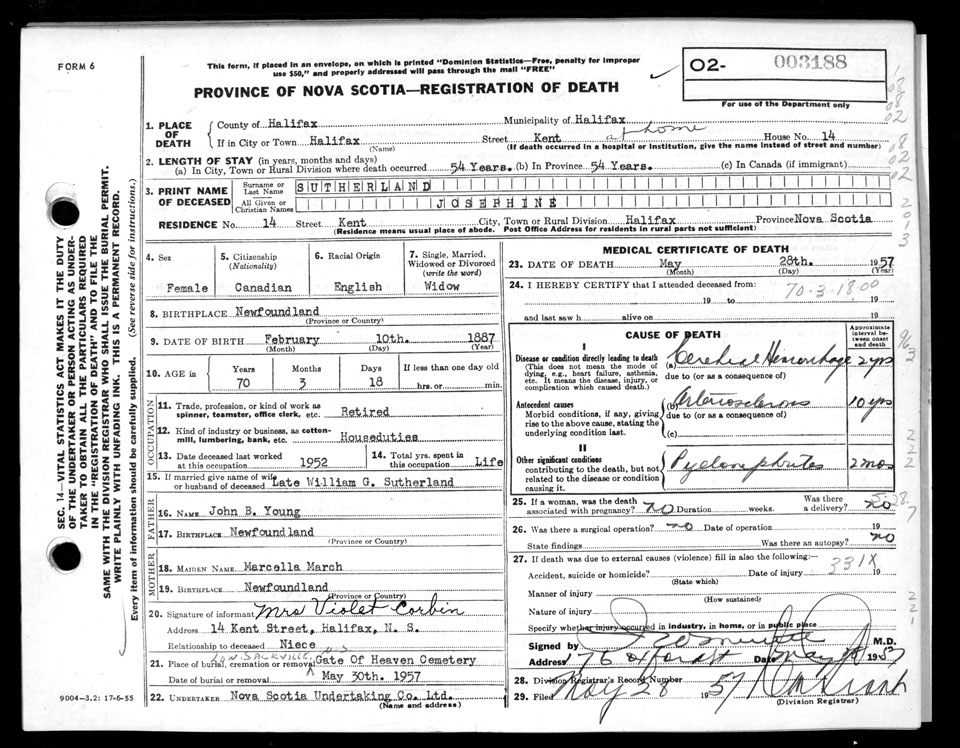 FORM 6
This form, if placed in an envelope, on which is printed "Dominion Statistics—Free, penalty for improper
use $50," and properly addressed will pass through the mail "FREE"
PROVINCE OF NOVA SCOTIA—REGISTRATION OF DEATH
O2- 003188
For use of the Department only
1. PLACE OF DEATH
County of Halifax Municipality of Halifax
If in City or Town Halifax Street Kent at home House No. 14
(Name) (If death occurred in a hospital or institution, give the name instead of street and number)
2. LENGTH OF STAY (in years, months and days)
(a) In City, Town or Rural Division where death occurred 54 Years. (b) In Province 54 Years. (c) In Canada (if immigrant)
3. PRINT NAME OF DECEASED
Surname or Last Name SUTHERLAND
All Given or Christian Names JOSEPHINE
RESIDENCE No. 14 Street Kent City, Town or Rural Division Halifax Province Nova Scotia
(Residence means usual place of abode. Post Office Address for residents in rural parts not sufficient)
4. Sex Female
5. Citizenship (Nationality) Canadian
6. Racial Origin English
7. Single, Married, Widowed or Divorced (write the word) Widow
8. BIRTHPLACE Newfoundland
(Province or Country)
9. DATE OF BIRTH February 10th. 1887
(Month) (Day) (Year)
10. AGE in Years 70 Months 3 Days 18 If less than one day old hrs. or min.
OCCUPATION
11. Trade, profession, or kind of work as spinner, teamster, office clerk, etc. Retired
12. Kind of industry or business, as cotton-mill, lumbering, bank, etc. Houseduties
13. Date deceased last worked at this occupation 1952
14. Total yrs. spent in this occupation Life
15. If married give name of wife or husband of deceased Late William G. Sutherland
FATHER
16. NAME John B. Young
17. BIRTHPLACE Newfoundland
(Province or Country)
MOTHER
18. MAIDEN NAME Marcella March
19. BIRTHPLACE Newfoundland
(Province or Country)
20. Signature of informant Mrs Violet Corbin
Address 14 Kent Street, Halifax, N. S.
Relationship to deceased Niece
LOW. SACKVILLE N.S
21. Place of burial, cremation or removal Gate Of Heaven Cemetery
Date of burial or removal May 30th. 1957
22. UNDERTAKER Nova Scotia Undertaking Co. Ltd.
(Name and address)
MEDICAL CERTIFICATE OF DEATH
23. DATE OF DEATH May 28th. 1957
(Month) (Day) (Year)
24. I HEREBY CERTIFY that I attended deceased from:
70-3-18-00
19 to 19
and last saw h alive on 19
CAUSE OF DEATH
Approximate interval between onset and death
I
Disease or condition directly leading to death
(This does not mean the mode of dying, e.g., heart failure, asthenia, etc. It means the disease, injury, or complication which caused death.)
(a) Cerebral Hemorrhage 2 yrs
due to (or as a consequence of)
Antecedent causes
Morbid conditions, if any, giving rise to the above cause, stating the underlying condition last.
(b) Arteriosclerosis 10 yrs
due to (or as a consequence of)
(c)
II
Other significant conditions
contributing to the death, but not related to the disease or condition causing it.
Pyelonephritis 2 mos
25. If a woman, was the death associated with pregnancy? no Duration weeks. Was there a delivery? no
5-28-7
26. Was there a surgical operation? no Date of operation 19
State findings Was there an autopsy? no
27. If death was due to external causes (violence) fill in also the following:
331X
Accident, suicide or homicide? Date of injury 19
(State which)
Manner of injury
(How sustained)
Nature of injury
Specify whether injury occurred in industry, in home, or in public place
Signed by M.D.
Address Date May 1957
28. Division Registrar's Record Number
29. Filed May 28 1957
(Division Registrar)
SEC. 14—VITAL STATISTICS ACT MAKES IT THE DUTY
OF THE UNDERTAKER OR PERSON ACTING AS UNDER-
TAKER TO OBTAIN ALL THE PARTICULARS REQUIRED
IN THE "REGISTRATION OF DEATH" AND TO FILE THE
SAME WITH THE DIVISION REGISTRAR WHO SHALL ISSUE THE BURIAL PERMIT.
WRITE PLAINLY WITH UNFADING INK. THIS IS A PERMANENT RECORD.
Every item of information should be carefully supplied. (See reverse side for instructions.)
9004—3.2: 17-6-55